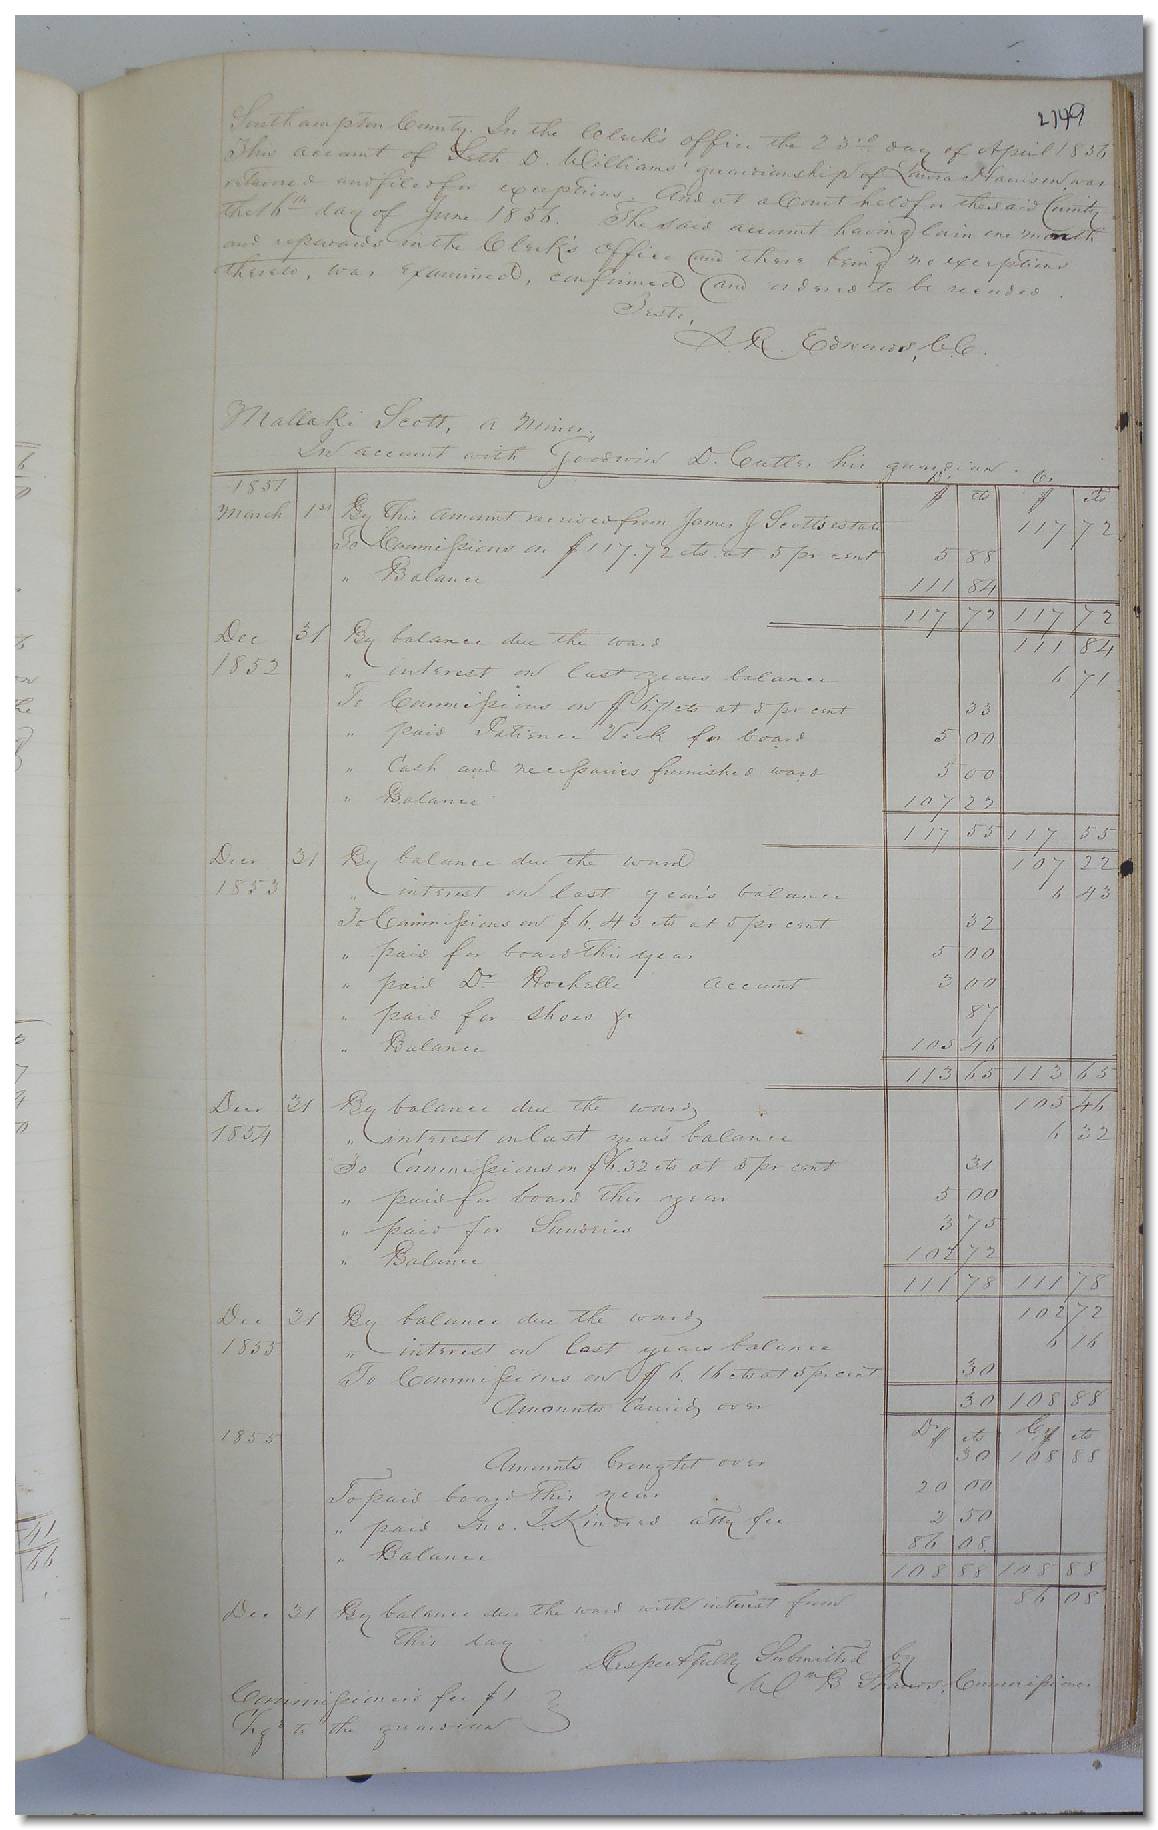 2149
Southampton County. In the Clerk's office the 23rd day of April 1856
This account of Seth D. Williams' guardianship of Laura Harrison was
returned and filed for exceptions. And at a Court held for the said County
the 16th day of June 1856. The said account having lain one month
and upwards in the Clerk's office and there being no exceptions
thereto, was examined, confirmed and ordered to be recorded.
Teste,
L. R. Edwards, C.C.
Mallaki Scott, a minor,
In account with Goodwin D. Cutler his guardian.
1851 Dr. Cr.
$ cts $ cts
March 1st By this amount received from James J Scott's estate 117 72
To Commissions on $117.72 cts at 5 pr cent 5 88
" Balance 111 84
117 72 117 72
Dec 31 By balance due the ward 111 84
1852 " interest on last years balance 6 71
To Commissions on $6.71 cts at 5 pr cent 33
" paid Patience Vick for board 5 00
" Cash and necessaries furnished ward 5 00
" Balance 107 22
117 55 117 55
Decr 31 By balance due the ward 107 22
1853 " interest on last year's balance 6 43
To Commissions on $6.43 cts at 5 pr cent 32
" paid for board this year 5 00
" paid Dr Rochelle account 3 00
" paid for shoes &c 87
" Balance 105 46
113 65 113 65
Decr 31 By balance due the ward 105 46
1854 " interest on last year's balance 6 32
To Commissions on $6.32 cts at 5 pr cent 31
" paid for board this year 5 00
" paid for Sundries 3 75
" Balance 102 72
111 78 111 78
Dec 31 By balance due the ward 102 72
1855 " interest on last years balance 6 16
To Commissions on $6.16 cts at 5 pr cent 30
Amounts Carried over 30 108 88
1855 Dr $ cts Cr $ cts
Amounts brought over 30 108 88
To paid board this year 20 00
" paid Jno. J. Kindred atty fee 2 50
" Balance 86 08
108 88 108 88
Dec 31 By balance due the ward with interest from 86 08
this day
Respectfully Submitted by
Wm B Shands, Commissioner
Commissioner's fee $1
chgd to the guardian